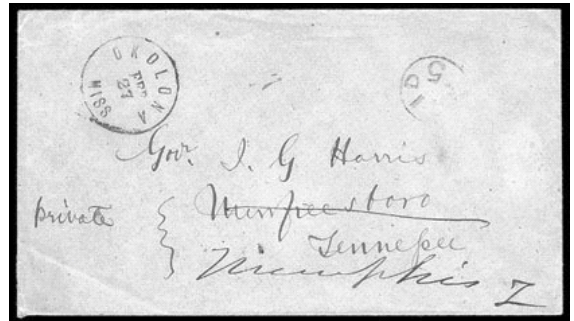 OKOLONA
MISS
FEB
27
PAID
5
Gov. I. G Harris
private
Murfreesboro
Tennessee
Memphis T